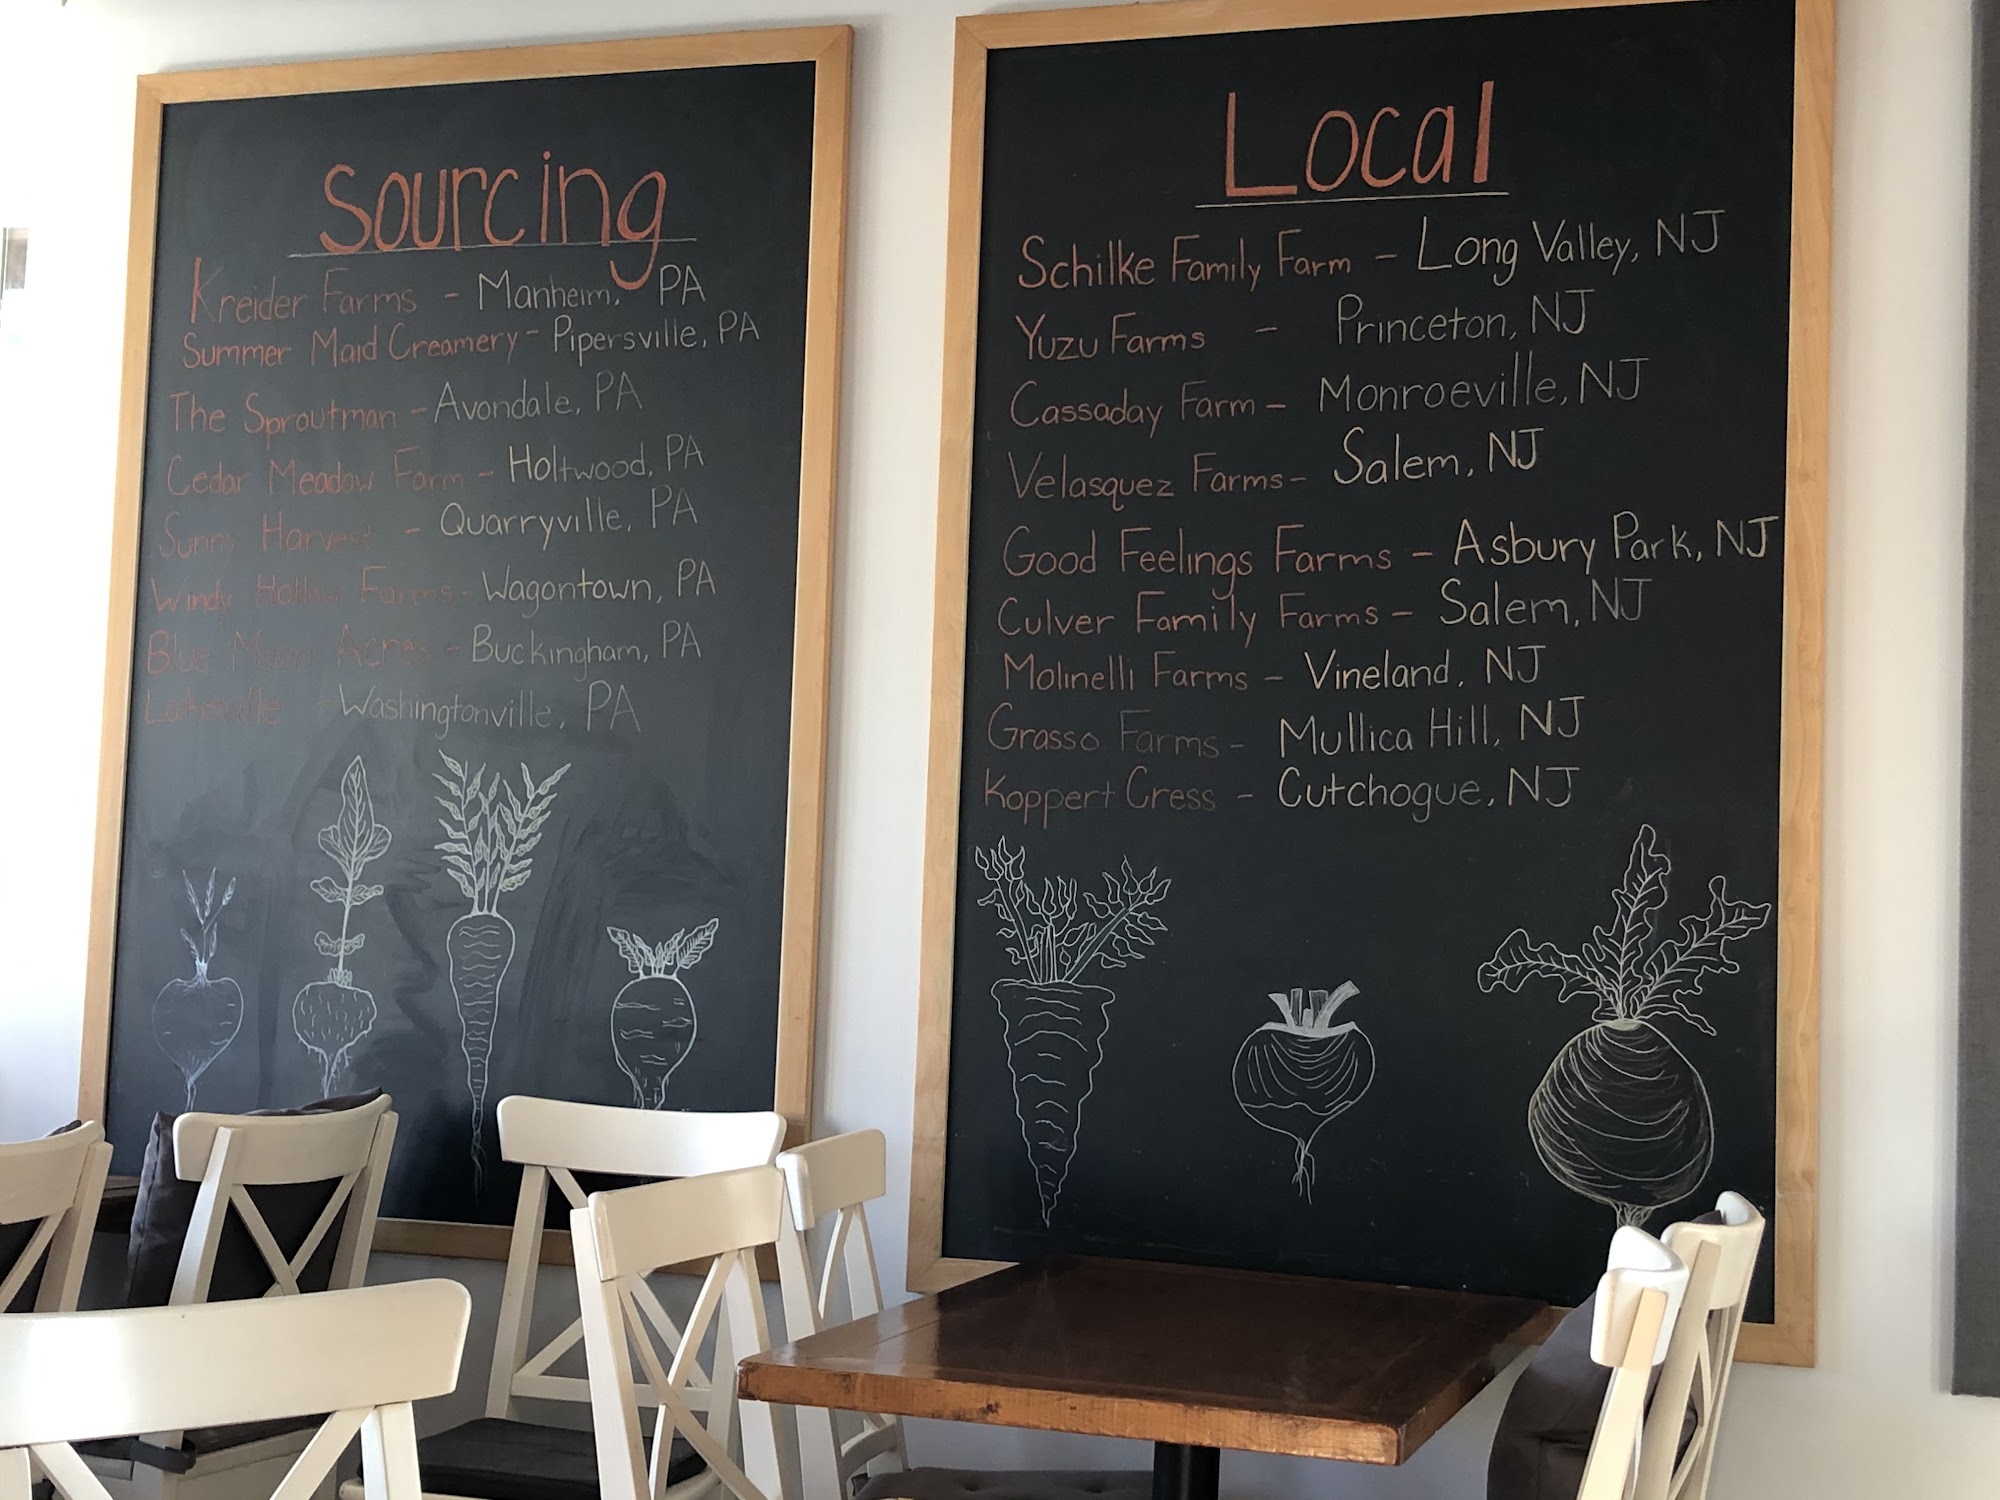 Sourcing
Kreider Farms - Manheim, PA
Summer Maid Creamery - Pipersville, PA
The Sproutman - Avondale, PA
Cedar Meadow Farm - Holtwood, PA
Sunny Harvest - Quarryville, PA
Windy Hollow Farms - Wagontown, PA
Blue Moon Acres - Buckingham, PA
Lakeville - Washingtonville, PA
Local
Schilke Family Farm - Long Valley, NJ
Yuzu Farms - Princeton, NJ
Cassaday Farm - Monroeville, NJ
Velasquez Farms - Salem, NJ
Good Feelings Farms - Asbury Park, NJ
Culver Family Farms - Salem, NJ
Molinelli Farms - Vineland, NJ
Grasso Farms - Mullica Hill, NJ
Koppert Cress - Cutchogue, NJ